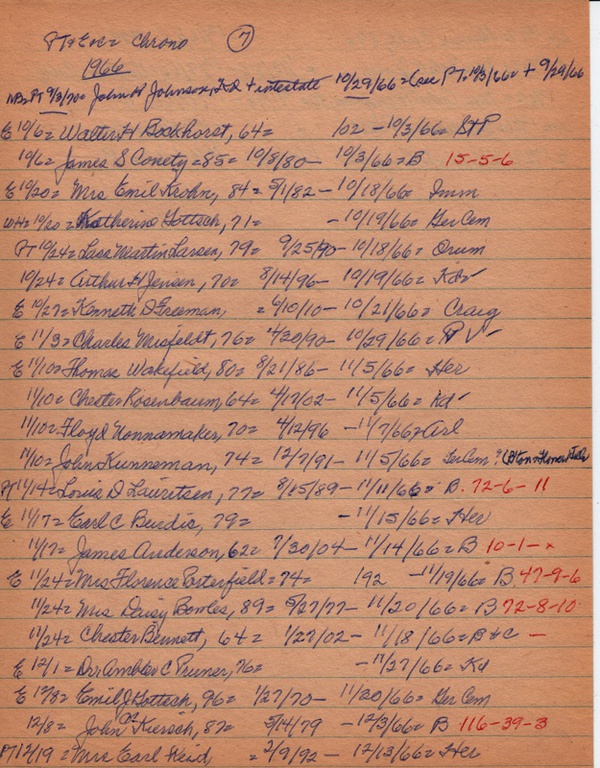 PT & Ent = Chrono 7
1966
NB = PT 9/3/70 = John H Johnson, Kd + intestate 10/29/66 = (see PT = 10/3/66 = + 9/29/66
E 10/6 = Walter H Bockhorst, 64 = 102 - 10/3/66 = StP
10/6 = James S Conety = 85 = 10/8/80 - 10/3/66 = B 15-5-6
E 10/20 = Mrs Emil Krohn, 84 = 5/1/82 - 10/18/66 = Imm
WH = 10/20 = Katherine Gottsch, 71 = - 10/19/66 = GerCem
PT 10/24 = Lass Martin Larsen, 79 = 9/25/90 - 10/18/66 = Orum
10/24 = Arthur H Jensen, 70 = 8/14/96 - 10/19/66 = Kd ✓
E 10/27 = Kenneth D Freeman, = 6/10/10 - 10/21/66 = Craig
E 11/3 = Charles Misfeldt, 76 = 4/20/90 - 10/29/66 = PV ✓
E 11/10 = Thomas Wakefield, 80 = 8/21/86 - 11/5/66 = Her
11/10 = Chester Rosenbaum, 64 = 4/17/02 - 11/5/66 = Kd ✓
11/10 = Floyd Nonnamaker, 70 = 4/12/96 - 11/7/66 = Arl
11/10 = John Kunneman, 74 = 12/7/91 - 11/5/66 = GerCem ?
PT 11/14 = Louis D Lauritsen, 77 = 8/15/89 - 11/11/66 = B. 72-6-11
E 11/17 = Earl C Burdic, 79 = - 11/15/66 = Her
11/17 = James Anderson, 62 = 7/30/04 - 11/14/66 = B 10-1-x
E 11/24 = Mrs Florence Porterfield = 74 = 192 - 11/19/66 = B. 47-9-6
11/24 = Mrs Daisy Bowles, 89 = 5/27/77 - 11/20/66 = B 72-8-10
11/24 = Chester Bennett, 64 = 1/27/02 - 11/18/66 = B & C -
E 12/1 = Dr Ambler C Pruner, 76 = - 11/27/66 = Kd
E 12/8 = Emil J Gottsch, 96 = 1/27/70 - 11/20/66 = GerCem
12/8 = John Kiersch, 87 = 5/14/79 - 12/3/66 = B 116-39-3
PT 12/19 = Mrs Earl Reid = 2/9/92 - 12/13/66 = Her